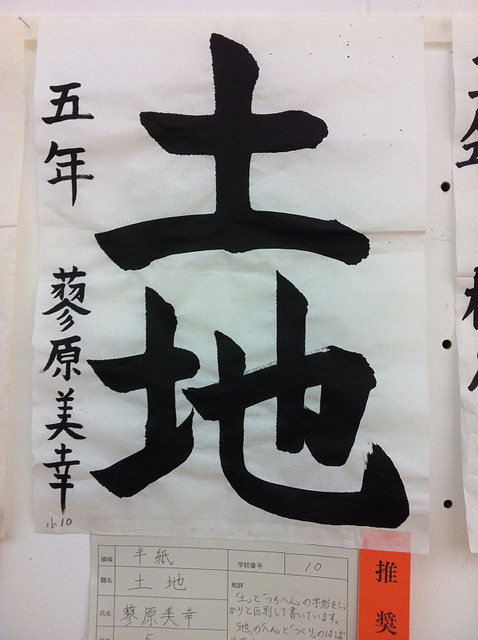 土地
五年 蓼原美幸
小10
領域 半紙
学校番号 10
題名 土地
氏名 蓼原美幸
短評
「土」と「つちへん」の字形をしっ
かりと区別して書いています。
「地」の「へん」と「つくり」のはば
5
推奨